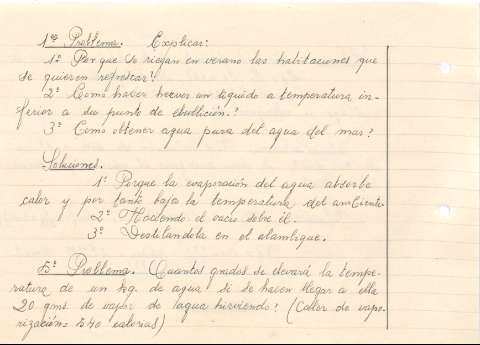 1er Problema. Explicar:
1º Por que se riegan en verano las habitaciones que
se quieren refrescar?
2º Como hacer hervir un liquido a temperatura in-
ferior a su punto de ebullición?
3º Como obtener agua pura del agua del mar?
Soluciones.
1º Porque la evaporación del agua absorbe
calor y por tanto baja la temperatura del ambiente.
2º Haciendo el vacio sobre él.
3º Destilandola en el alambique.
5º Problema. Cuantos grados se elevará la tempe-
ratura de un kg. de agua si se hacen llegar a ella
20 gms. de vapor de agua hirviendo? (Calor de vapo-
rización = 540 calorias)